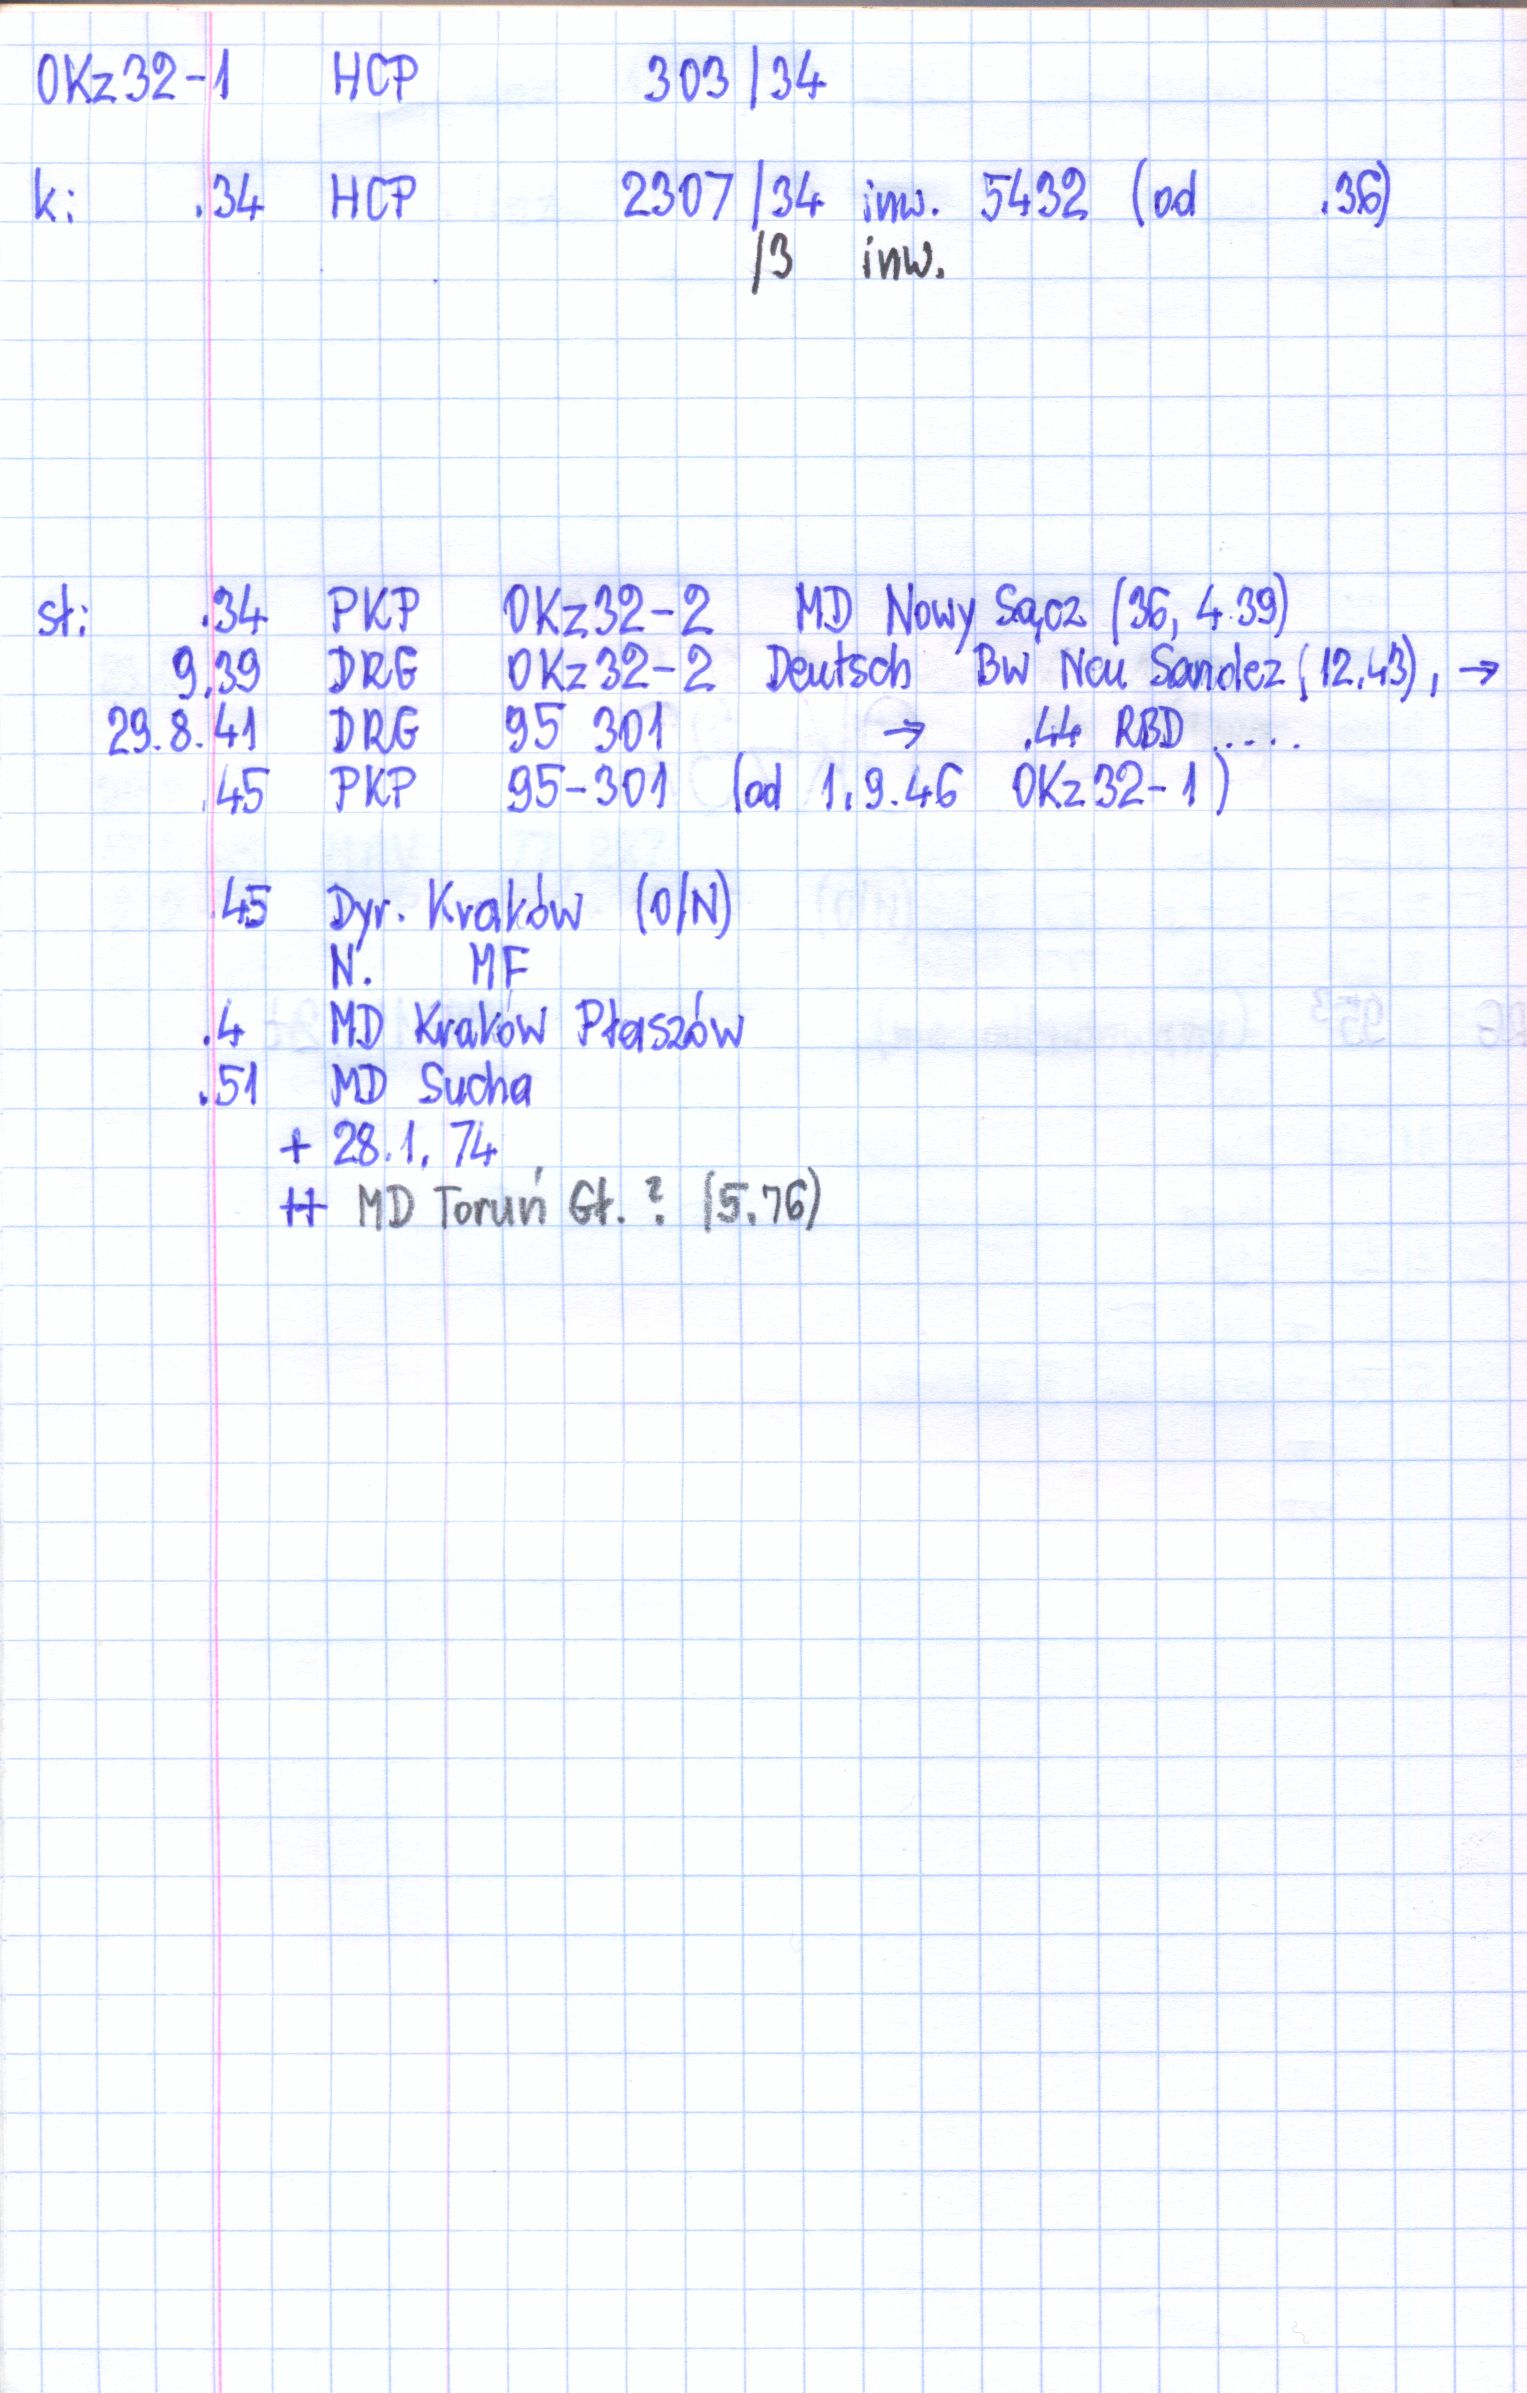 OKz32-1 HCP 303/34
k: .34 HCP 2307/34 inw. 5432 (od .36)
/3 inw.
st: .34 PKP OKz32-2 MD Nowy Sącz (36, 4.39)
9.39 DRG OKz32-2 Deutsch Bw Neu Sandez (12.43), →
29.8.41 DRG 95 301 → .44 RBD .....
.45 PKP 95-301 (od 1.9.46 OKz32-1)
.45 Dyr. Kraków (O/N)
N. MF
.4 MD Kraków Płaszów
.51 MD Sucha
+ 28.1.74
++ MD Toruń Gł. ? (5.76)